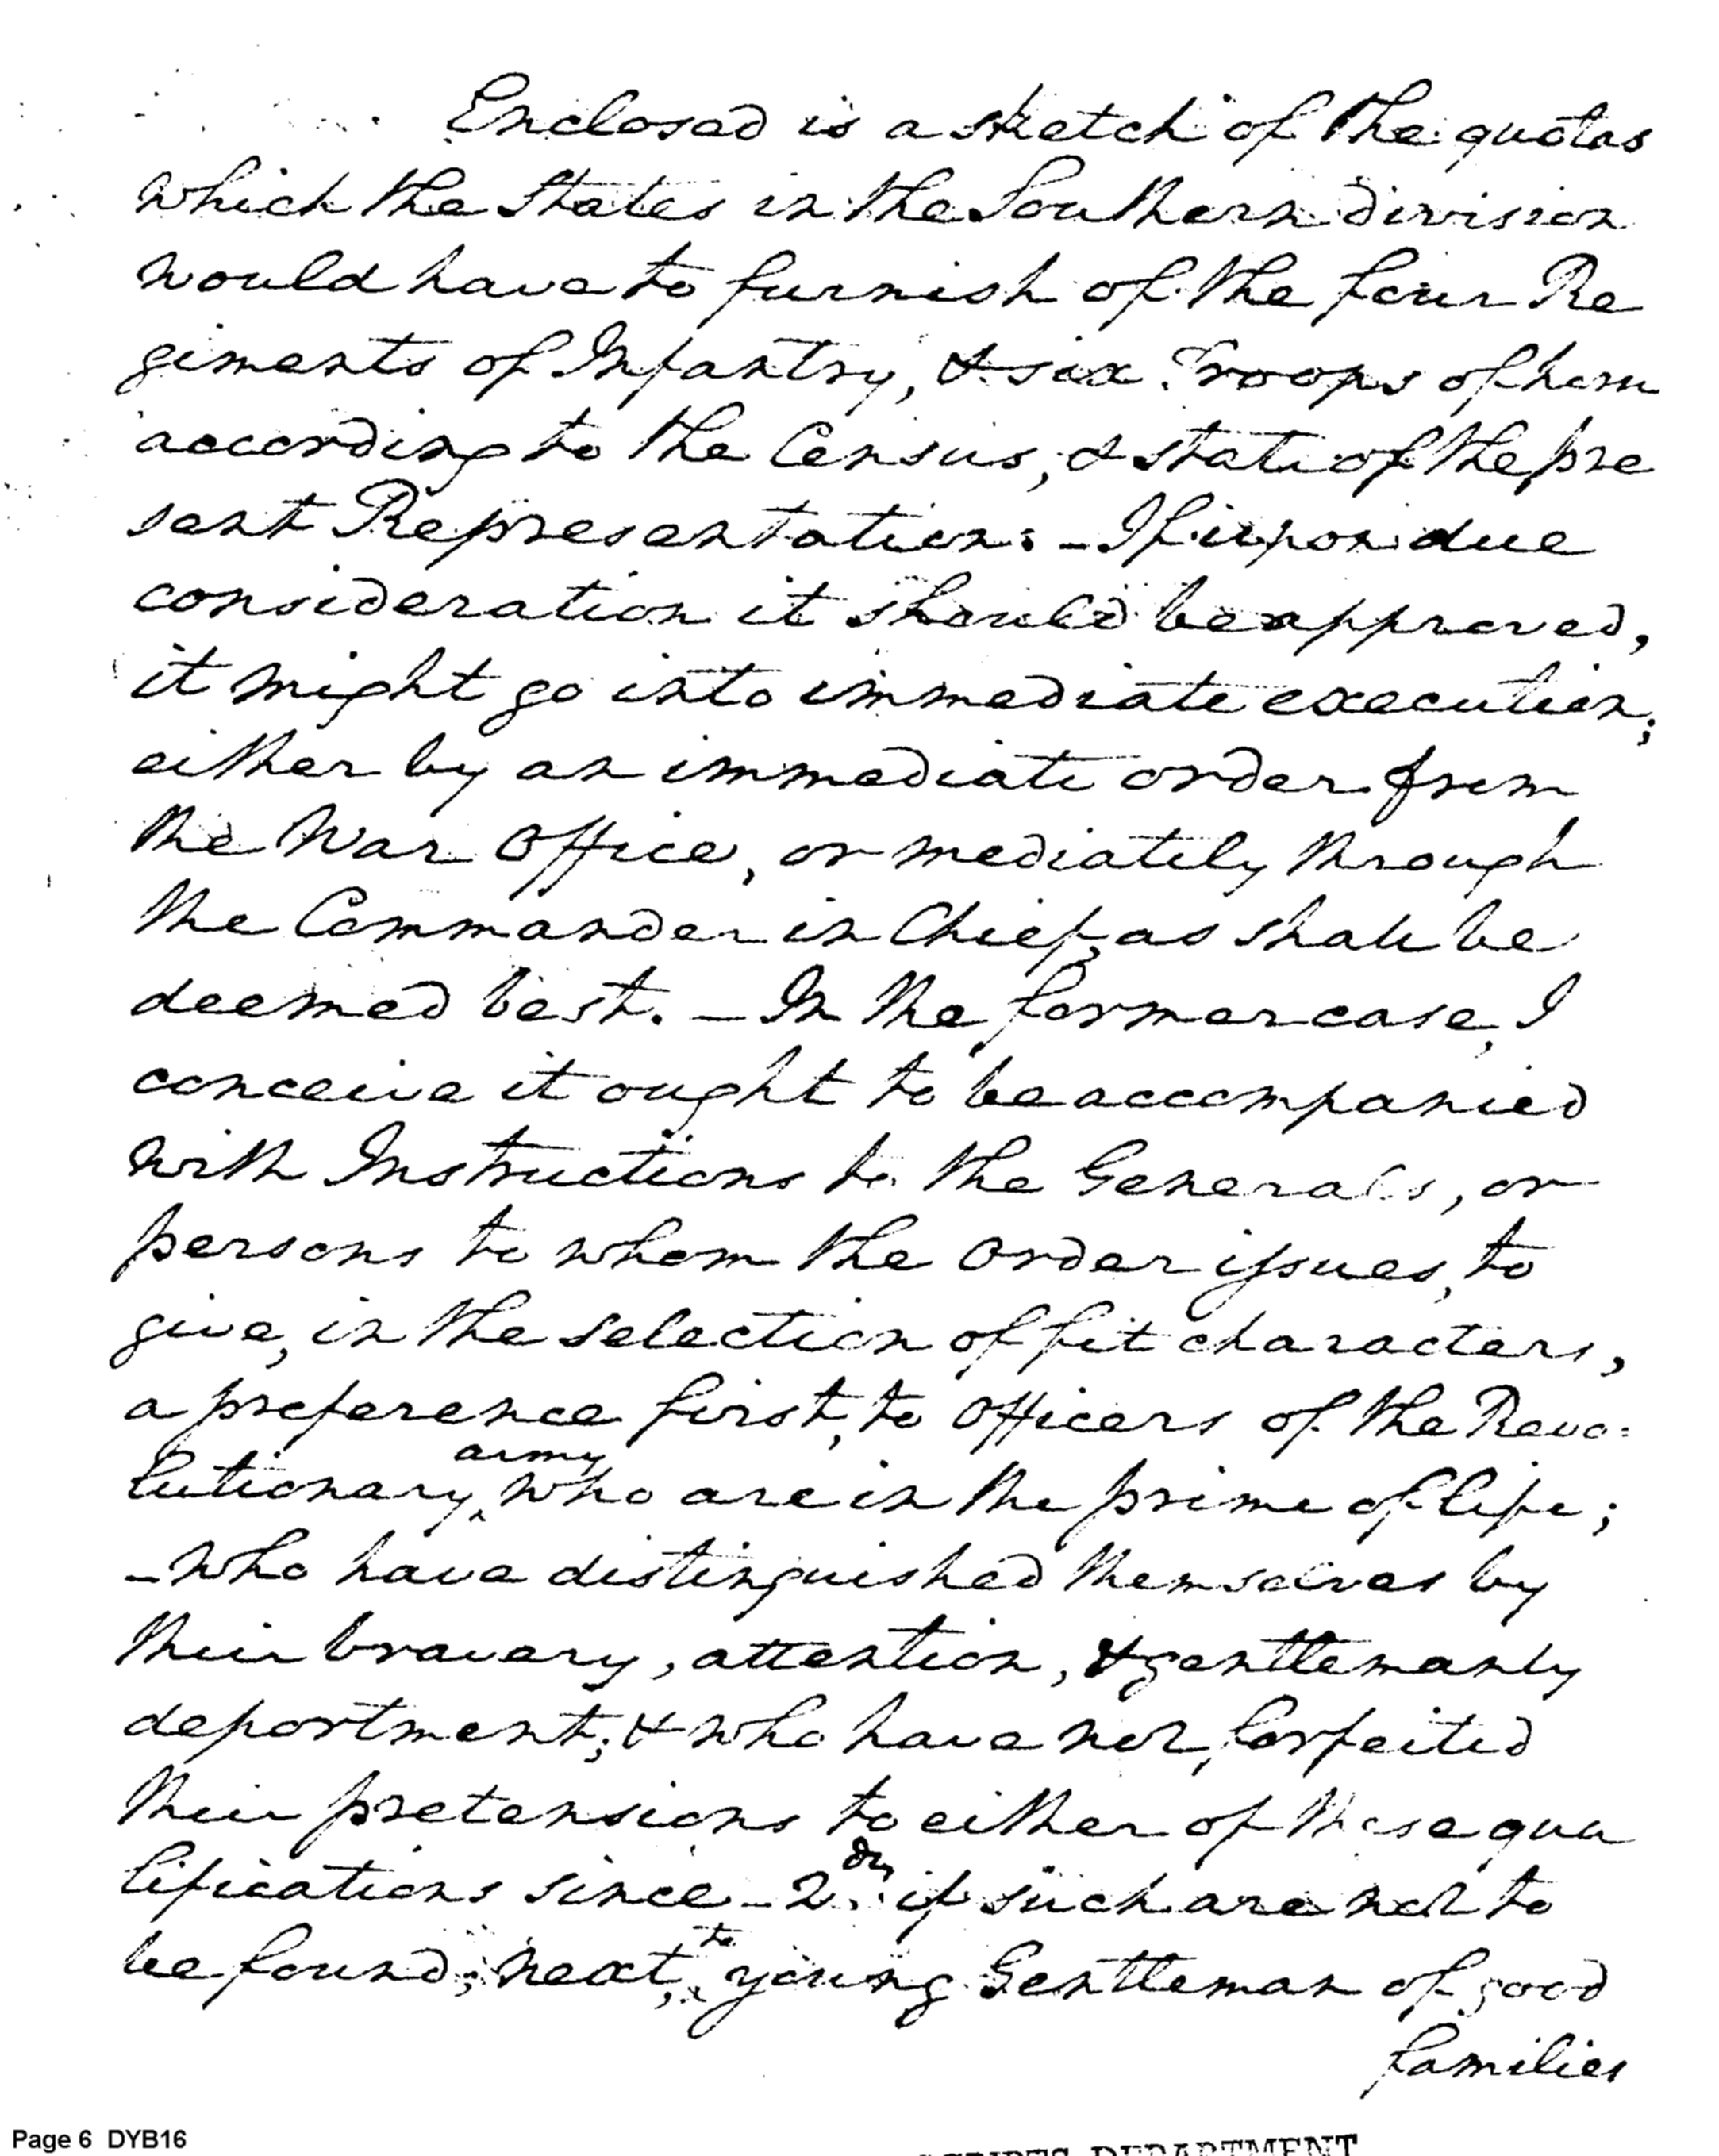 Enclosed is a sketch of the quotas
which the States in the Southern division
would have to furnish of the four Re
giments of Infantry, & six Troops of horse
according to the Census, & state of the pre
sent Representation: - If upon due
consideration it should be approved,
it might go into immediate execution;
either by an immediate order from
the War Office, or mediately through
the Commander in Chief, as shall be
deemed best. - In the former case, I
conceive it ought to be accompanied
with Instructions to the Generals, or
persons to whom the Order issues, to
give, in the selection of fit characters,
a preference first, to Officers of the Revo=
army
lutionary, who are in the prime of life;
- who have distinguished themselves by
their bravery, attention, & gentlemanly
deportment; & who have not forfeited
their pretensions to either of these qua
lifications since - 2dly if such are not to
to
be found; next, young Gentleman of good
families
Page 6 DYB16
DEPARTMENT